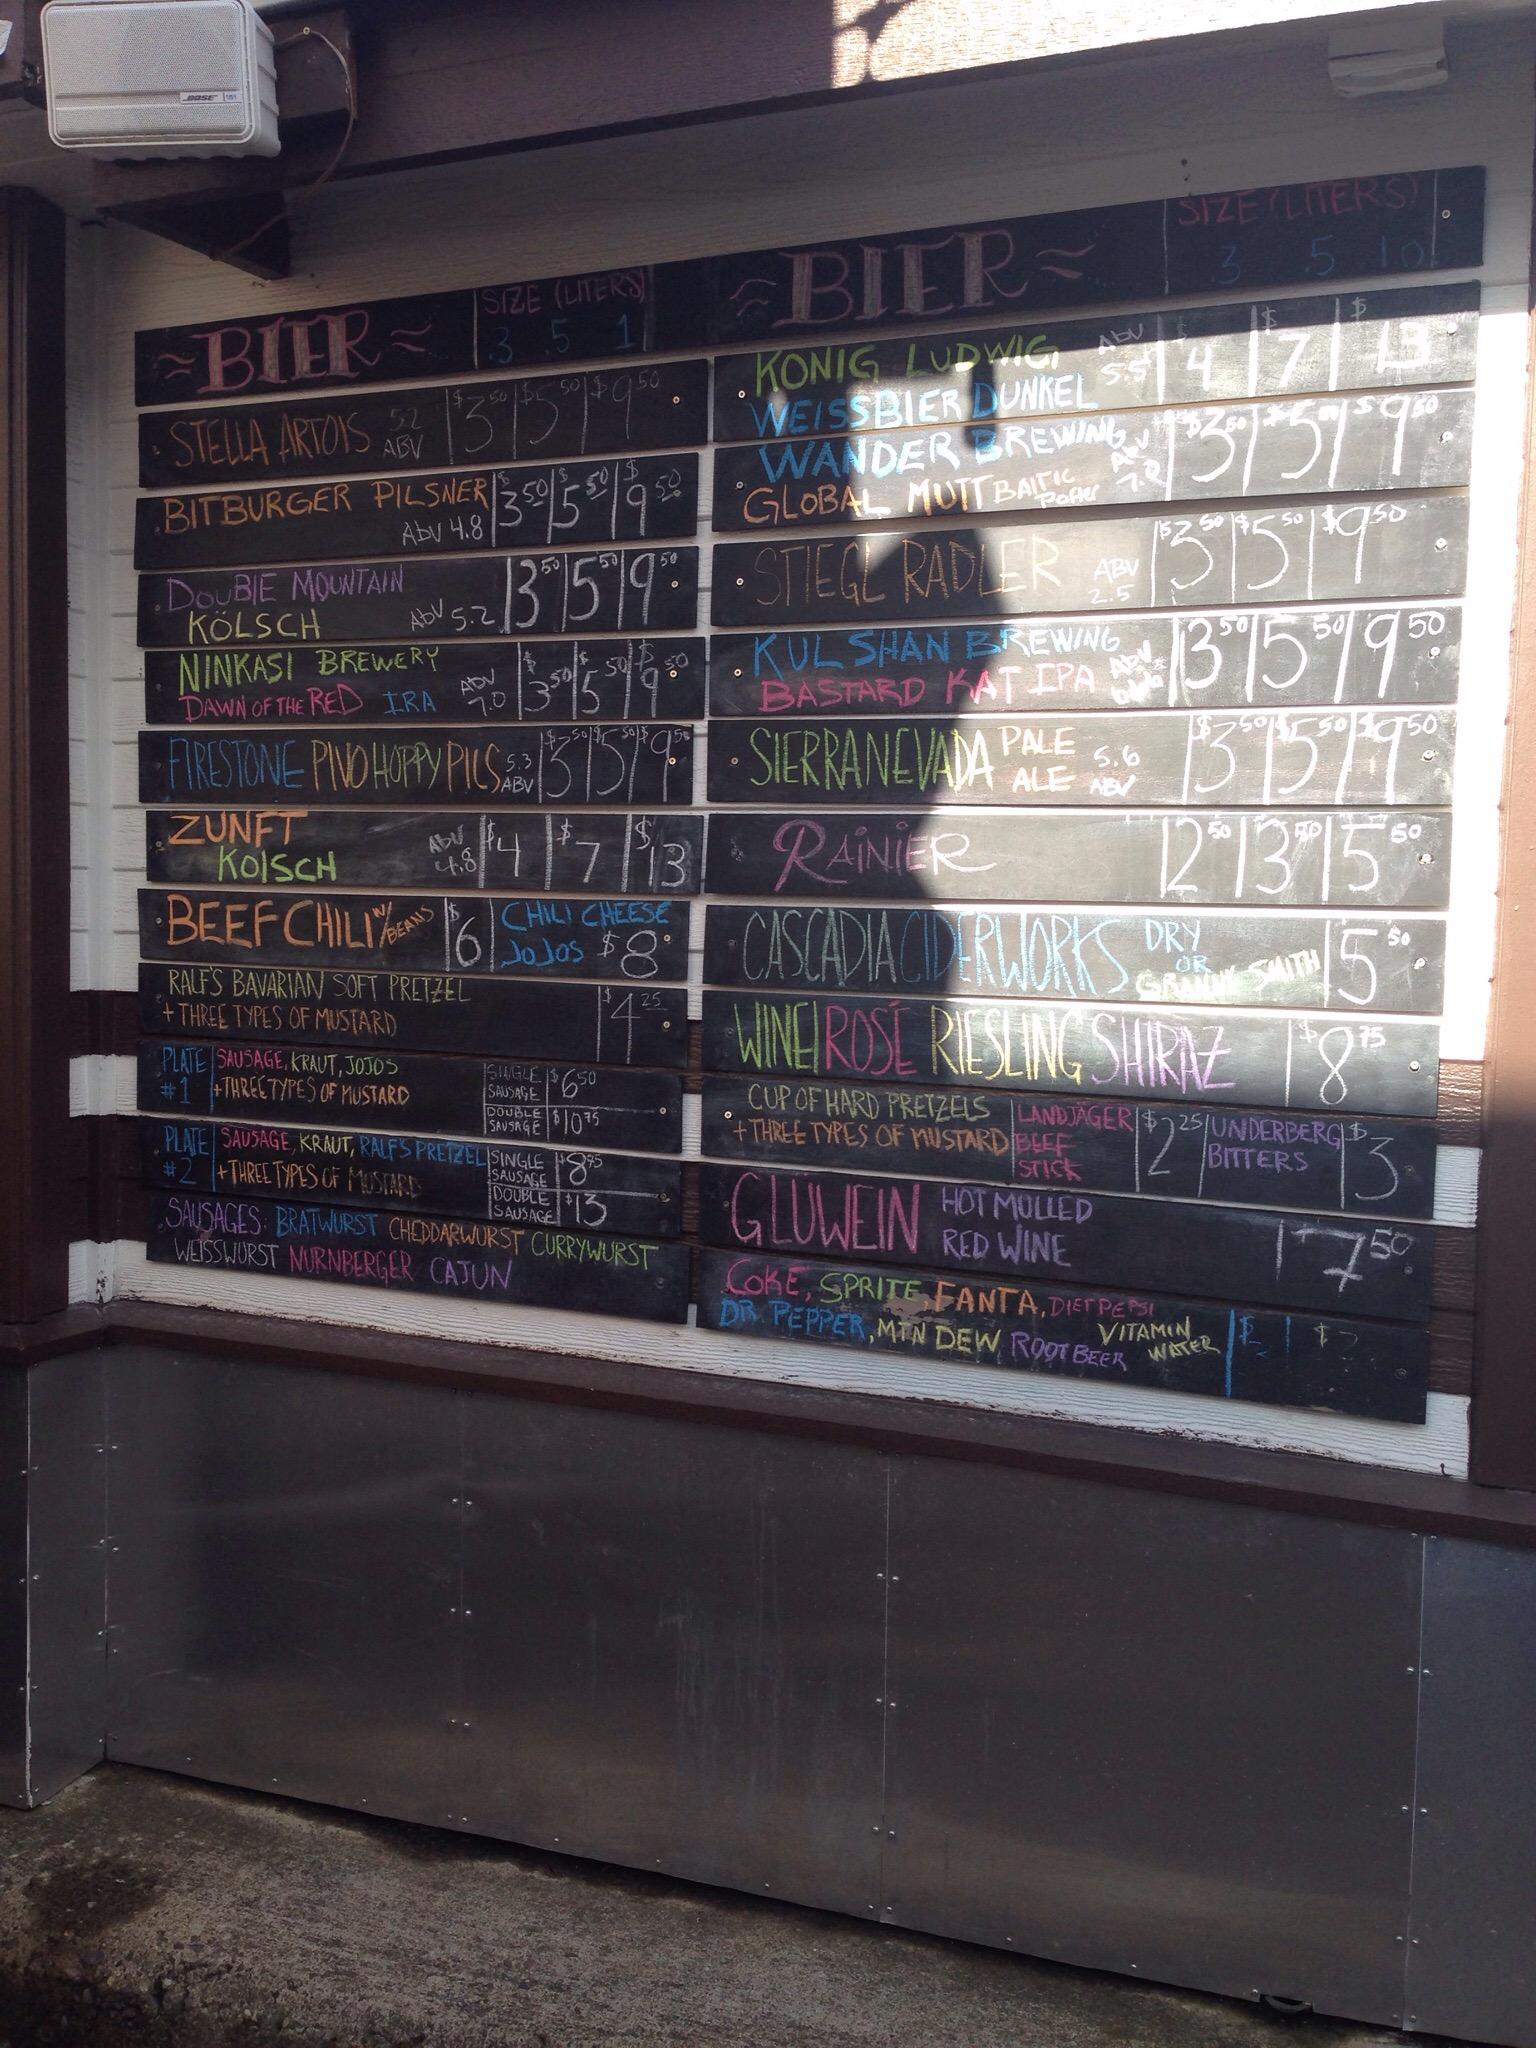 BOSE
≈BIER≈ SIZE (LITERS)
.3 .5 1
STELLA ARTOIS 5.2 ABV $3.50 $5.50 $9.50
BITBURGER PILSNER ABV 4.8 $3.50 $5.50 $9.50
DOUBLE MOUNTAIN
KÖLSCH ABV 5.2 3.50 5.50 9.50
NINKASI BREWERY
DAWN OF THE RED IRA ABV 7.0 $3.50 $5.50 $9.50
FIRESTONE PIVO HOPPY PILS 5.3 ABV $3.50 $5.50 $9.50
ZUNFT
KOLSCH ABV 4.8 $4 $7 $13
BEEF CHILI W/ BEANS $6 CHILI CHEESE
JOJOS $8
RALF'S BAVARIAN SOFT PRETZEL
+ THREE TYPES OF MUSTARD $4.25
PLATE #1 SAUSAGE, KRAUT, JOJOS
+ THREE TYPES OF MUSTARD
SINGLE SAUSAGE $6.50
DOUBLE SAUSAGE $10.75
PLATE #2 SAUSAGE, KRAUT, RALF'S PRETZEL
+ THREE TYPES OF MUSTARD
SINGLE SAUSAGE
DOUBLE SAUSAGE $13
SAUSAGES: BRATWURST CHEDDARWURST CURRYWURST
WEISSWURST NURNBERGER CAJUN
≈BIER≈ SIZE (LITERS)
.3 .5 1.0
KONIG LUDWIG ABV 5.5 $4 $7 $13
WEISSBIER DUNKEL
WANDER BREWING
GLOBAL MUTT BALTIC Porter ABV $3.50 $5.50 $9.50
STIEGL RADLER ABV 2.5 $3.50 $5.50 $9.50
KULSHAN BREWING
BASTARD KAT IPA ABV 3.50 5.50 9.50
SIERRA NEVADA PALE ALE 5.6 ABV $3.50 $5.50 $9.50
RAINIER 2.50 3.50 5.50
CASCADIA CIDERWORKS DRY OR GRANNY SMITH 5.50
WINE| ROSÉ RIESLING SHIRAZ $8.75
CUP OF HARD PRETZELS
+ THREE TYPES OF MUSTARD
LANDJÄGER
BEEF
STICK $2.25
UNDERBERG
BITTERS $3
GLÜWEIN HOT MULLED
RED WINE 7.50
COKE, SPRITE, FANTA, DIET PEPSI
DR. PEPPER, MTN DEW ROOT BEER VITAMIN WATER